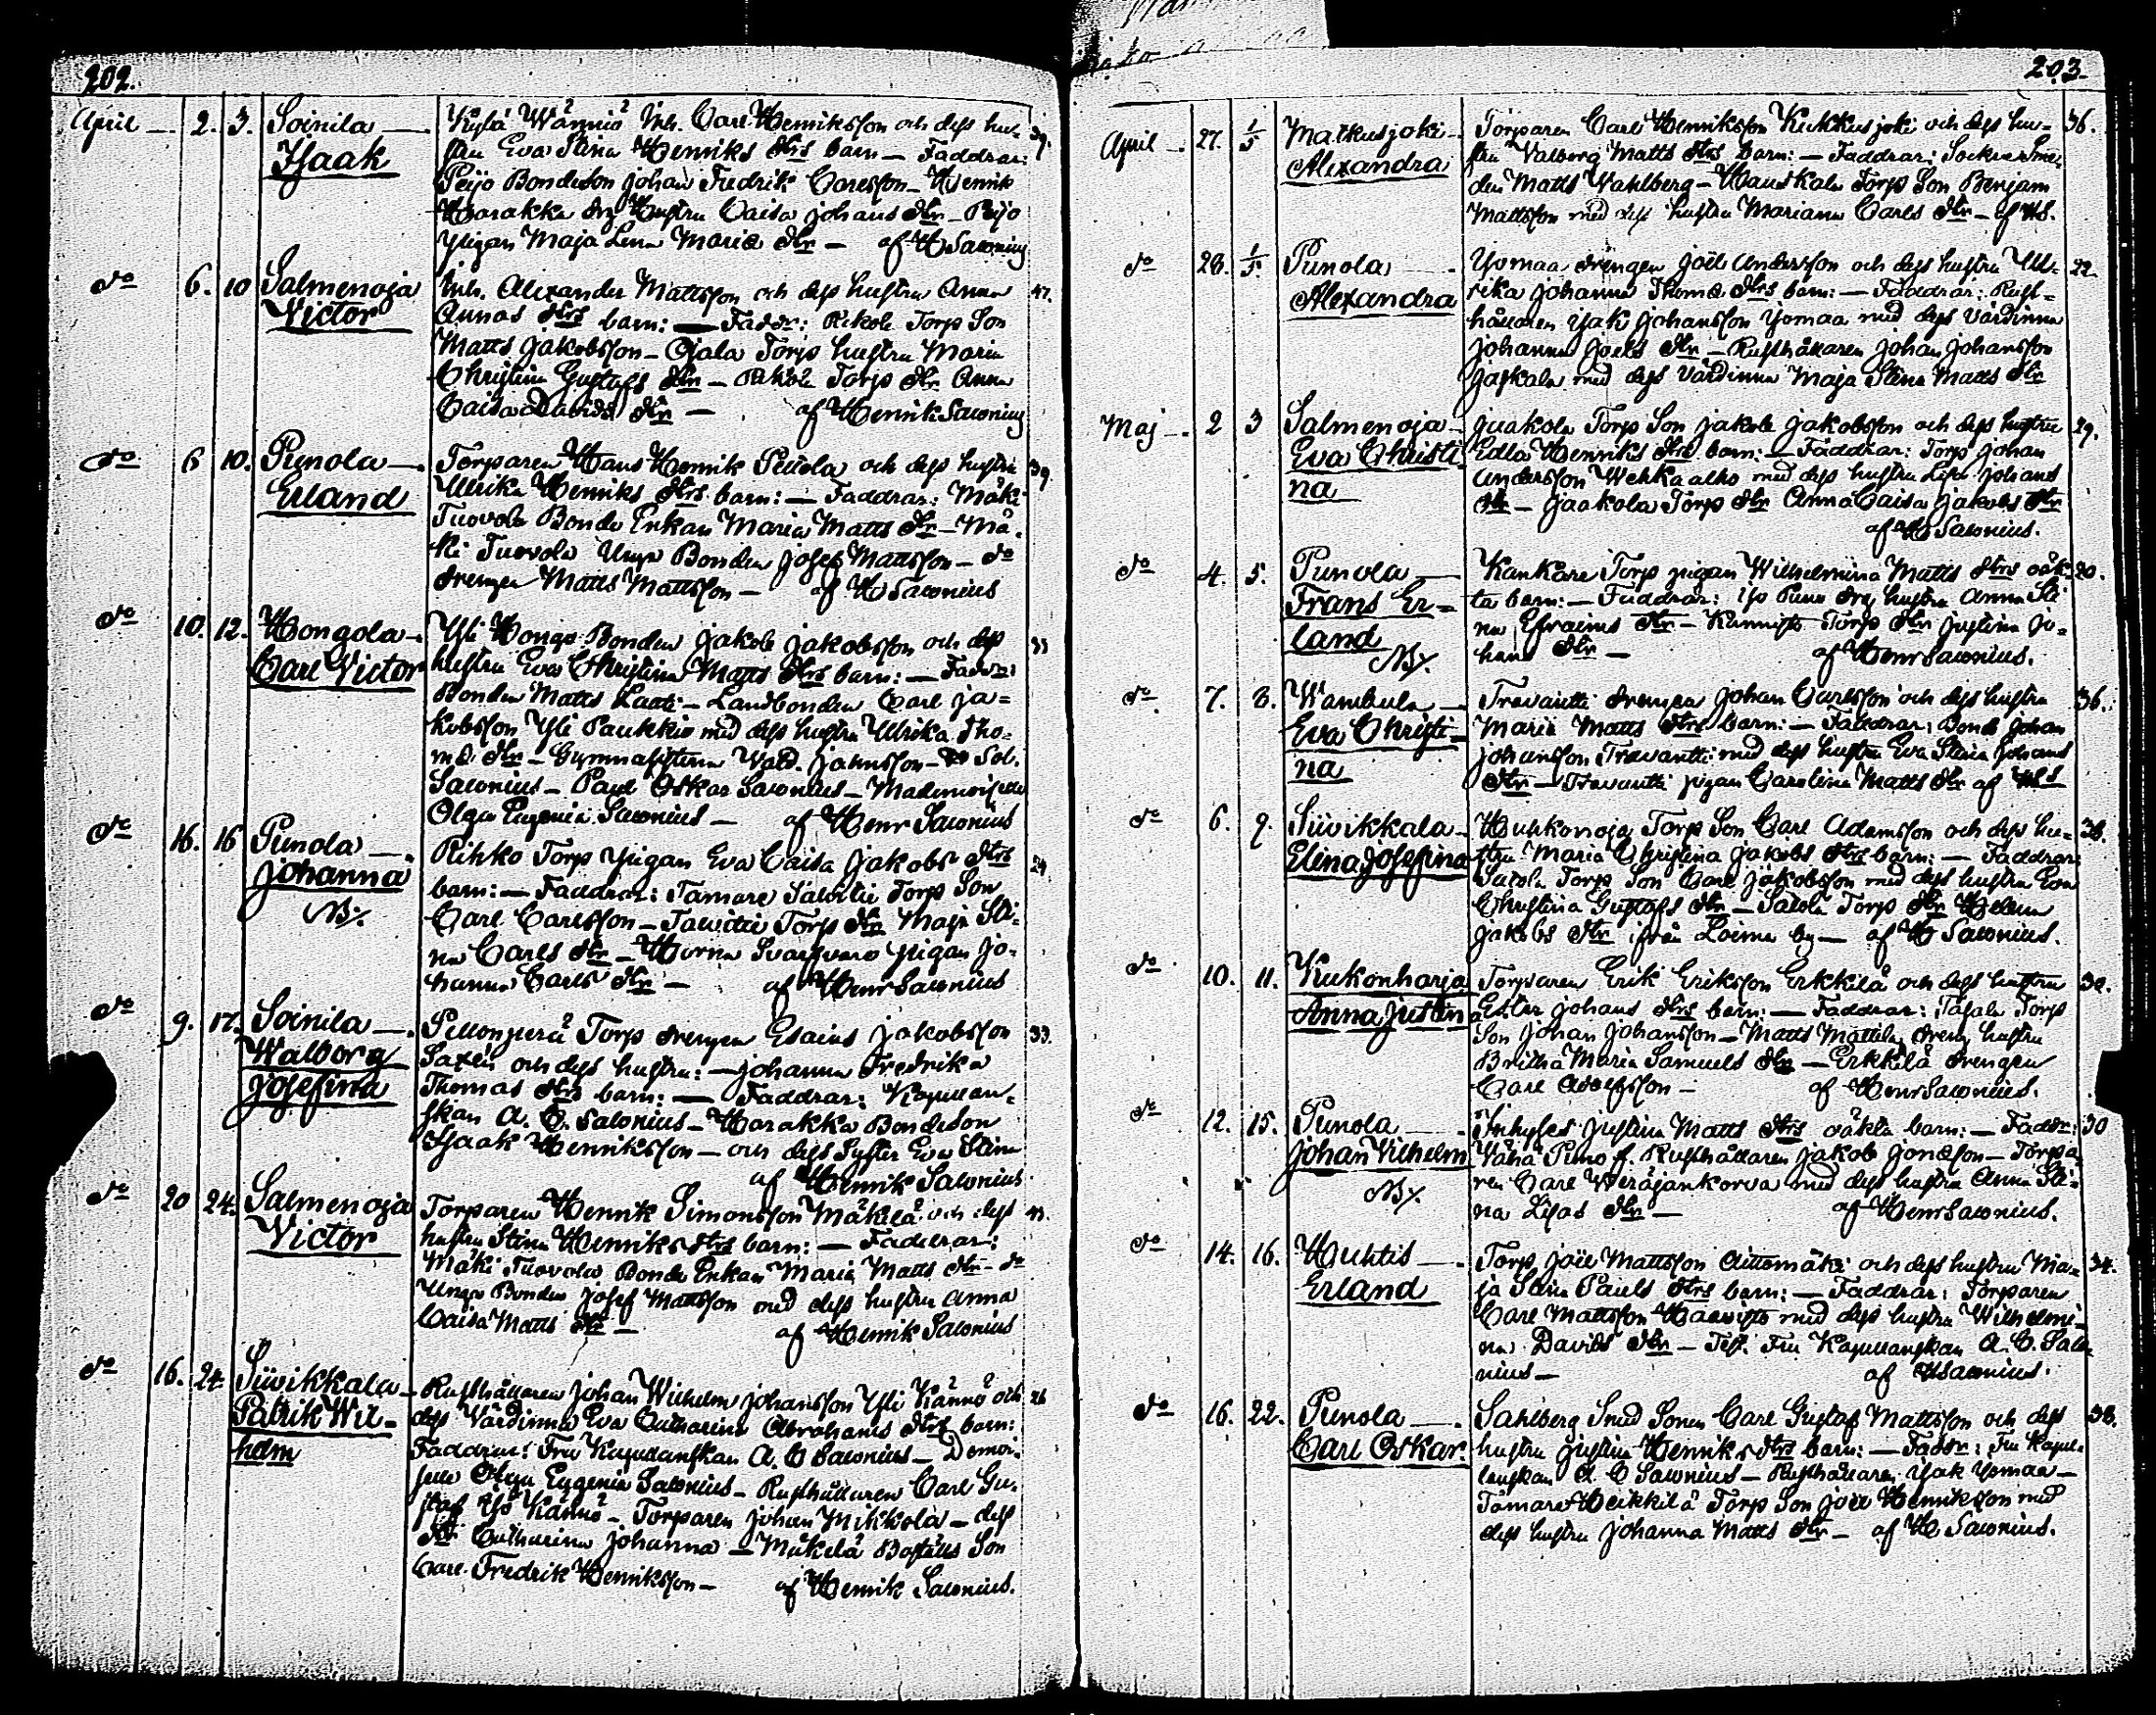 202.
April 2. 3. Soinila
Isaak
Kylä Wänniö Inh. Carl Henriksson och dess hu- 39.
stru Eva Stina Henriks dtrs barn — Faddrar:
Peijo Bondeson Johan Fredrik Carlsson — Henrik
Harakka drg hustru Caisa Johans dtr — Peijo
pigan Maja Lena Mariæ dtr — af H Salonius
do 6. 10 Salmenoja
Victor
Inh. Alexander Mattsson och dess hustru Anna 47.
Annas dtrs barn: — Faddr: Rekola Torp Son
Matts Jakobsson — Ojala Torp hustru Maria
Christina Gustafs dtr — Torp dtr Anna
Caisa Davids dtr — af Henrik Salonius
do 6 10. Punola
Erland
Torparen Hans Henrik Peltola och dess hustru 39.
Ulrika Henriks dtrs barn: — Faddrar: Mäki
Tuovola Bonde Enkan Maria Matts dtr — Mä-
ki Tuovola Unga Bonden Josef Mattsson — do
drengen Matts Mattsson — af H Salonius
do 10. 12. Hongola
Carl Victor
Yli Hongo Bonden Jakob Jakobsson och dess 33
hustru Eva Christina Matts dtrs barn: — Faddr:
Bonden Matts Laati — Landbonden Carl Ja-
kobsson Yli Paukkio med dess hustru Ulrika Tho-
mæ dtr — Gymnasisterna Wald. Jahnsson — do Sol.
Salonius — Paul Oskar Salonius — Mademoiselle
Olga Eugenia Salonius — af Henr Salonius
do 16. 16 Punola
Johanna
NB.
Rihko Torp pigan Eva Caisa Jakobs dtrs 24
barn: — Faddrar: Tamare Torp Son
Carl Carlsson — Torp dtr Maja Sti-
na Carls dtr — pigan Jo-
hanna Carls dtr — af Henr Salonius
do 9. 17. Soinila
Walborg
Josefina
Pellonperä Torp drengen Esaias Jakobsson 33.
Saxén och dess hustru: — Johanna Fredrika
Thomas dtrs barn: — Faddrar: Kapellan-
skan A. C. Salonius — Harakka Bondeson
Isaak Henriksson — och dess Syster Eva Stina
af Henrik Salonius
do 20 24. Salmenoja
Victor
Torparen Henrik Simonsson Mäkelä och dess 43.
hustru Stina Henriks dtrs barn: — Faddrar:
Mäki Tuovola Bonde Enkan Maria Matts dtr — do
Unga Bonden Josef Mattsson med dess hustru Anna
Caisa Matts dtr — af Henrik Salonius
do 16. 24. Siivikkala
Patrik Wil-
helm
Rusthållaren Johan Wilhelm Johansson Yli Kännö och 26
dess Värdinna Eva Catharina Abrahams dtrs barn:
Faddrar: Fru Kapellanskan A. C Salonius — Demoi-
selle Olga Eugenia Salonius — Rusthållaren Carl Gu-
staf Yli Kännö — Torparen Johan Mikkola — dess
dtr Catharina Johanna — Mäkelä Boställs Son
Carl Fredrik Henriksson — af Henrik Salonius.
203.
April 27. 1/5 Matkusjoki
Alexandra
Torparen Carl Henriksson Kukkusjoki och dess hu- 36.
stru Valborg Matts dtrs barn: — Faddrar: Sockne Sme-
den Matts Wahlberg — Hauskala Torp Son Benjam
Mattsson med dess hustru Mariana Carls dtr — af HS.
do 28. 1/5 Punola
Alexandra
Yomaa drengen Joël Andersson och dess hustru Ul- 22.
rika Johanna Thomæ dtrs barn: — Faddrar: Rust-
hållaren Isak Johansson Yomaa med dess värdinna
Johanna Joels dtr — Rusthållaren Johan Johansson
Jaskala med dess Värdinna Maja Stina Matts dtr
Maj 2 3 Salmenoja
Eva Christi
na
Jaakola Torp Son Jakob Jakobsson och dess hustru 29.
Edla Henriks dtrs barn: — Faddrar: Torp Johan
Andersson Wehkaalho med dess hustru Lisa Johans
dtr — Jaakola Torp dtr Anna Caisa Jakobs dtr
af H Salonius.
do 4. 5. Punola
Frans Er-
land
NB.
Kankare Torp pigan Wilhelmina Matts dtrs oäk- 20.
ta barn: — Faddrar: Iso Puno drg hustru Anna Sti
na Efraims dtr — Torp dtr Justina Jo-
hans dtr — af Henr Salonius.
do 7. 8. Wambula
Eva Christi-
na
Travantti drengen Johan Carlsson och dess hustru 36.
Maria Matts dtrs barn: — Faddrar: Bonde Johan
Johansson Travantti med dess hustru Eva Stina Johans
dtr — Travantti pigan Carolina Matts dtr af HS
do 6. 9. Siivikkala
Elina Josefina
Huhkonoja Torp Son Carl Adamsson och dess hu- 38.
stru Maria Christina Jakobs dtrs barn: — Faddrar:
Satola Torp Son Carl Jakobsson med dess hustru Eva
Christina Gustafs dtr — Satola Torp dtr Helena
Jakobs dtr ifrån Loima by — af H Salonius.
do 10. 11. Kukonharja
Anna Justina
Torparen Erik Eriksson Erkkilä och dess hustru 32.
Ester Johans dtrs barn: — Faddrar: Torp
Son Johan Johansson — Matts Mattila dreng hustru
Britha Maria Samuels dtr — Erkkilä drengen
Carl Adolfsson — af Henr Salonius.
do 12. 15. Punola
Johan Vilhelm
NB.
Inhyses Justina Matts dtrs oäkta barn: — Faddr: 30
Vähä Puno f. Rusthållaren Jakob Jonæson — Torpa
ren Carl Weräjänkorva med dess hustru Anna Sti-
na Lisas dtr — af Henr Salonius.
do 14. 16. Huhtis
Erland
Torp. Joël Mattsson Aittomäki och dess hustru Ma- 34.
ja Stina Pauls dtrs barn: — Faddrar: Torparen
Carl Mattsson Haavisto med dess hustru Wilhelmi-
na Davids dtr — Test. Fru Kapellanskan A. C. Salo-
nius — af HSalonius.
do 16. 22. Punola
Carl Oskar.
Sahlberg Smed Sonen Carl Gustaf Mattsson och dess 38.
hustru Justina Henriks dtrs barn: — Faddr: Fru Kapel-
lanskan A C Salonius — Rusthållaren Isak Yomaa —
Tamare Heikkilä Torp Son Joël Henriksson med
dess hustru Johanna Matts dtr — af H Salonius.